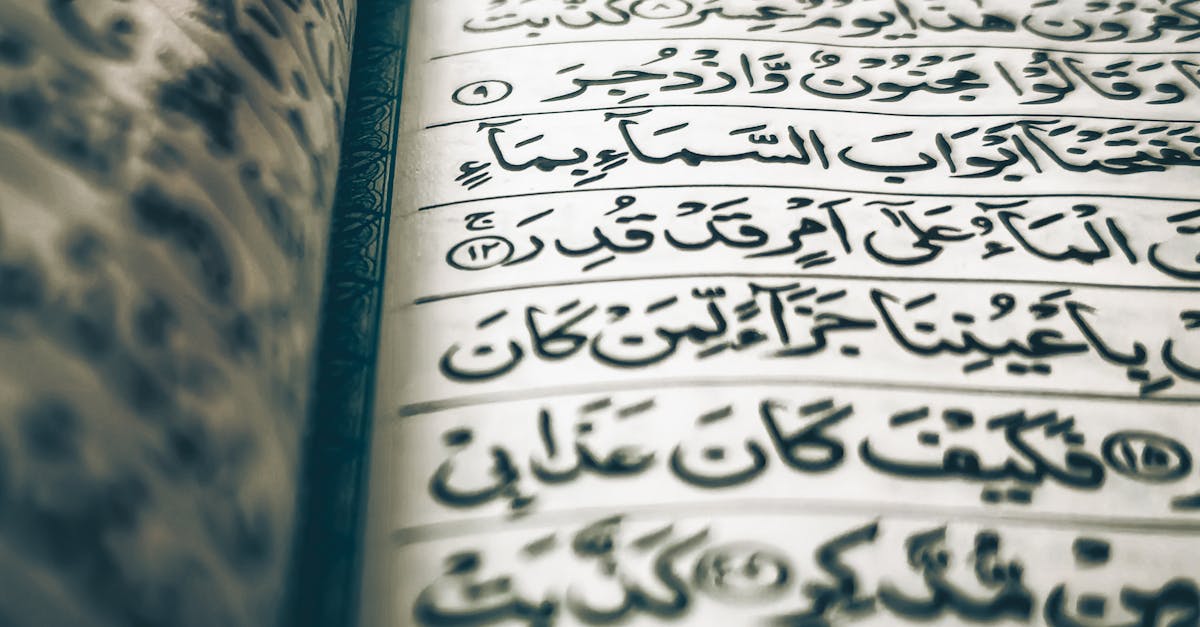 هٰذَا يَوْمٌ عَسِرٌ ٨ كَذَّبَتْ
وَقَالُوْا مَجْنُوْنٌ وَّازْدُجِرَ ٩
فَفَتَحْنَآ اَبْوَابَ السَّمَآءِ بِمَآءٍ
الْمَآءُ عَلٰٓى اَمْرٍ قَدْ قُدِرَ ج ١٢
بِاَعْيُنِنَا جَزَآءً لِّمَنْ كَانَ
١٥ فَكَيْفَ كَانَ عَذَابِيْ
مِنْ مُّدَّكِرٍ كَذَّبَتْ